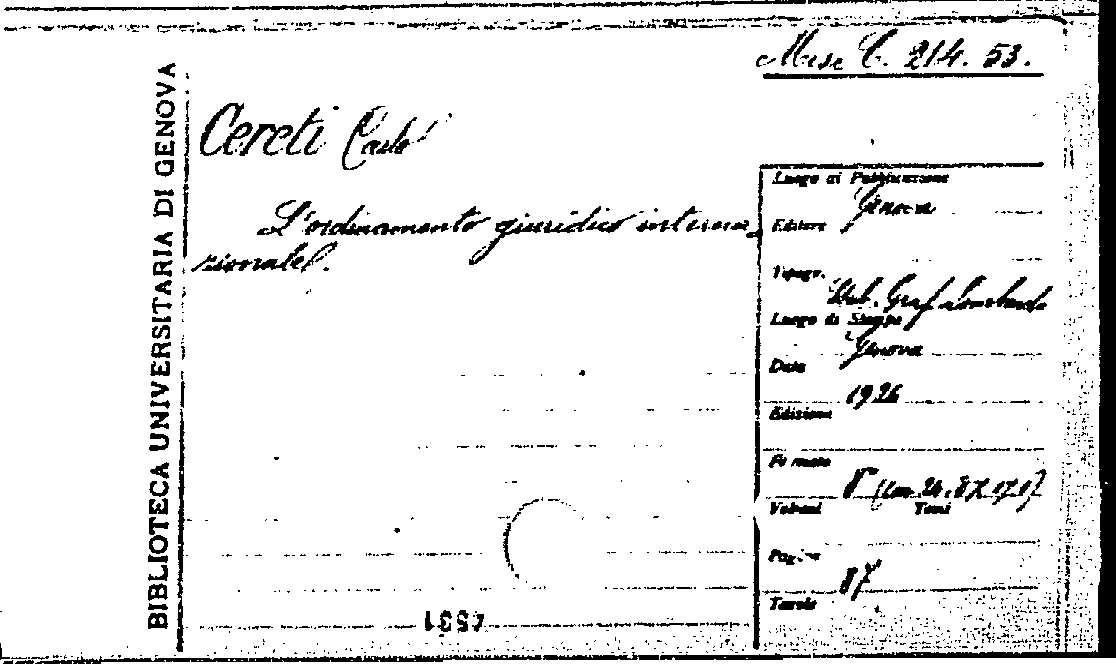 Misc C. 214. 53.
BIBLIOTECA UNIVERSITARIA DI GENOVA
Cereti Carlo
L'ordinamento giuridico interna-
zionale.
Luogo di Pubblicazione
Genova
Editore
Tipogr.
Stab. Graf. Lombardo
Luogo di Stampa
Genova
Data
1926
Edizione
Formato
8°
Volumi Tomi
Pagine
87
Tavole